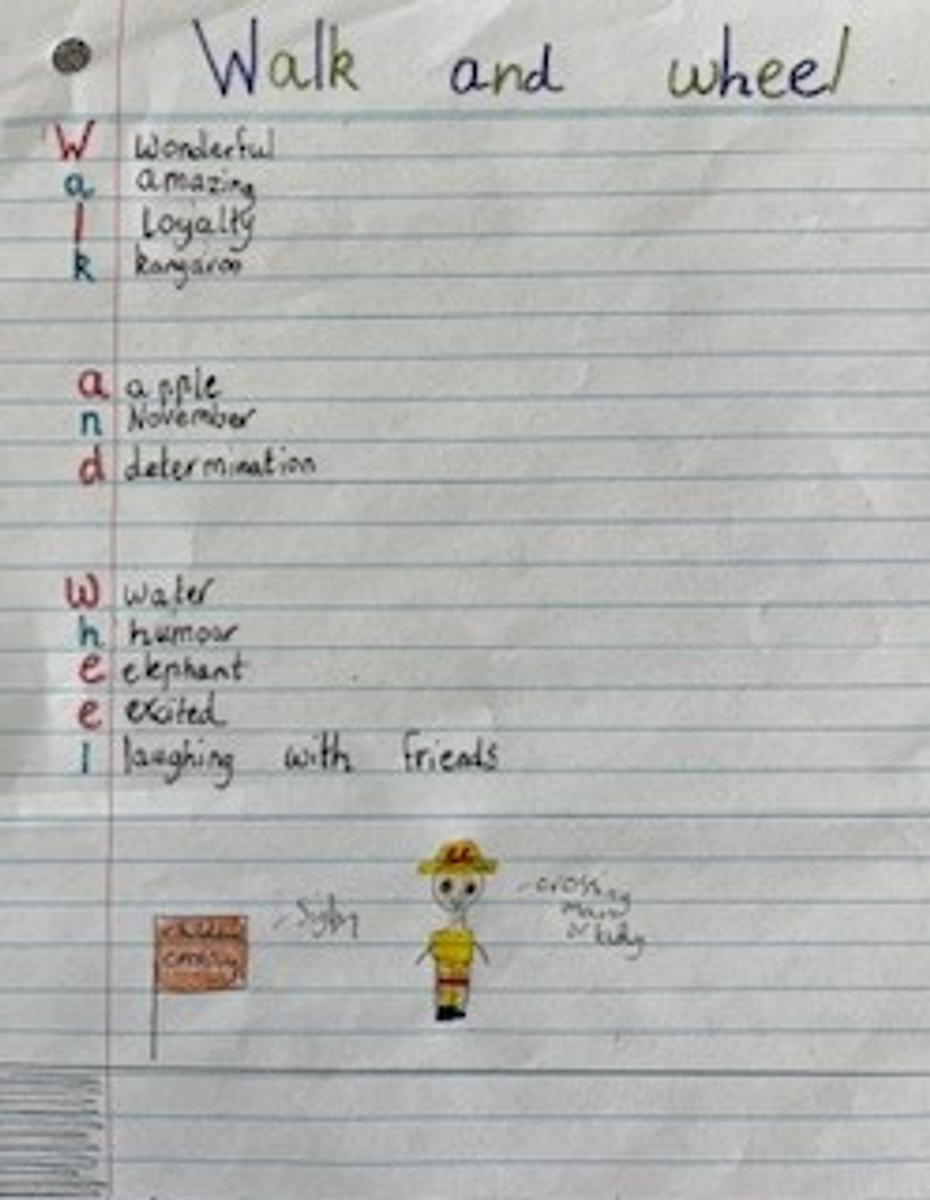 Walk and wheel
W wonderful
a amazing
l Loyalty
k kangaroo
a apple
n November
d determination
w water
h humour
e elephant
e excited
l laughing with friends
cc
- crossing
man
or lady
- Sign
children
crossing